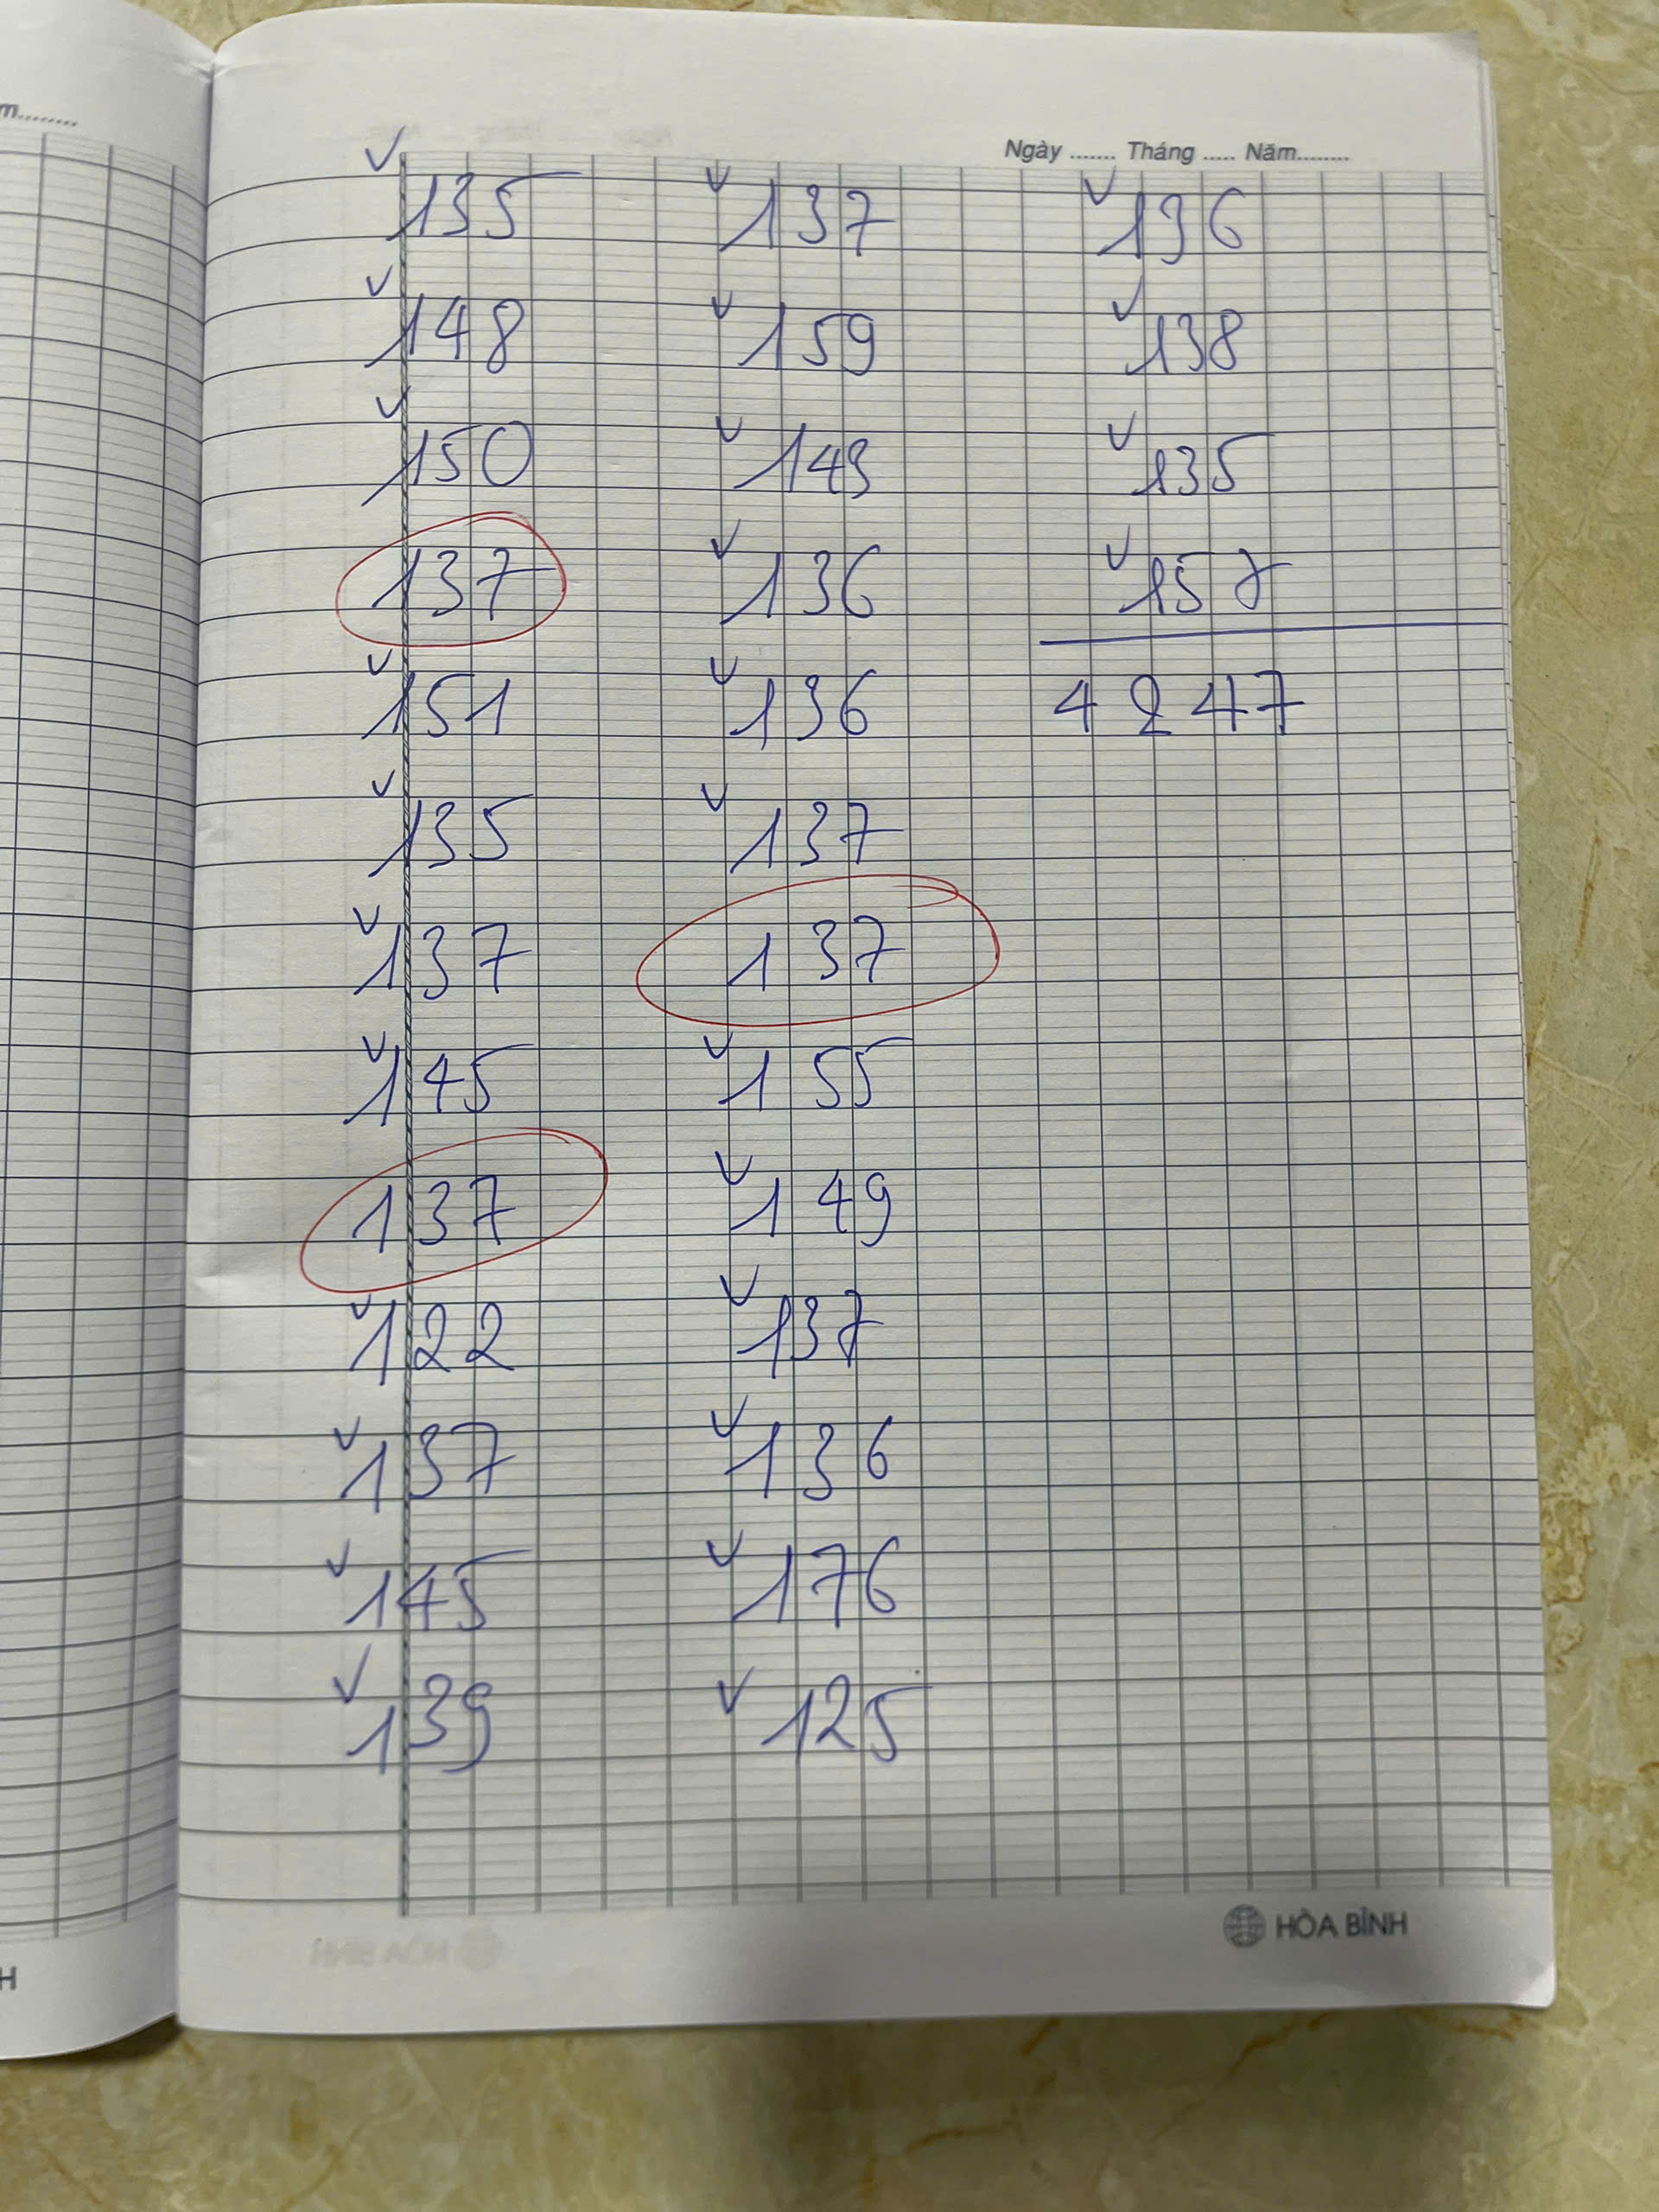 m........
H
Ngày ....... Tháng ..... Năm........
135
148
150
137
151
135
137
145
137
122
137
145
139
137
159
143
136
136
137
137
155
149
137
136
176
125
136
138
135
157
4247
HÒA BÌNH